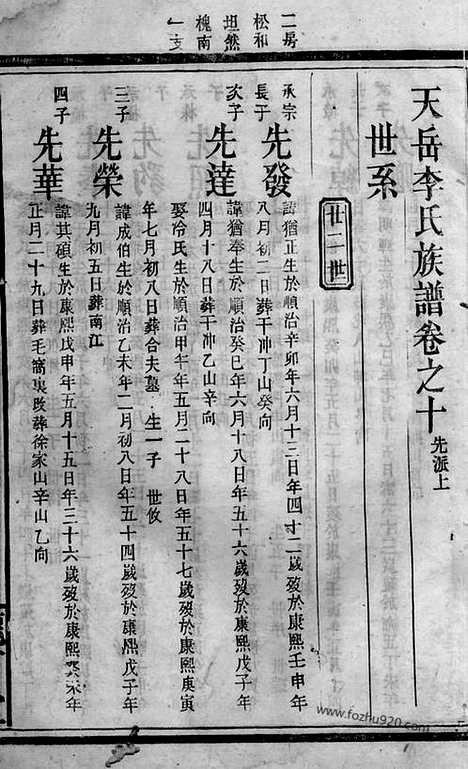 二房
松和
坦然
槐南
一支
天岳李氏族譜卷之十 先派上
世系
廿二世
承宗長子 先發 諱猶正生於順治辛卯年六月十三日年四十二歲歿於康熙壬申年
八月初二日葬干冲丁山癸向
次子 先達 諱猶奉生於順治癸巳年六月十八日年五十六歲歿於康熙戊子年
四月十八日葬干冲乙山辛向
娶冷氏生於順治甲午年五月二十八日年五十七歲歿於康熙庚寅
年七月初八日葬合夫墓 生一子 世攸
三子 先榮 諱成伯生於順治乙未年二月初八日年五十四歲歿於康熙戊子年
九月初五日葬南江
四子 先華 諱其碩生於康熙戊申年五月十五日年三十六歲歿於康熙癸未年
正月二十九日葬毛窩裏改葬徐家山辛山乙向
www.fozhu920.com